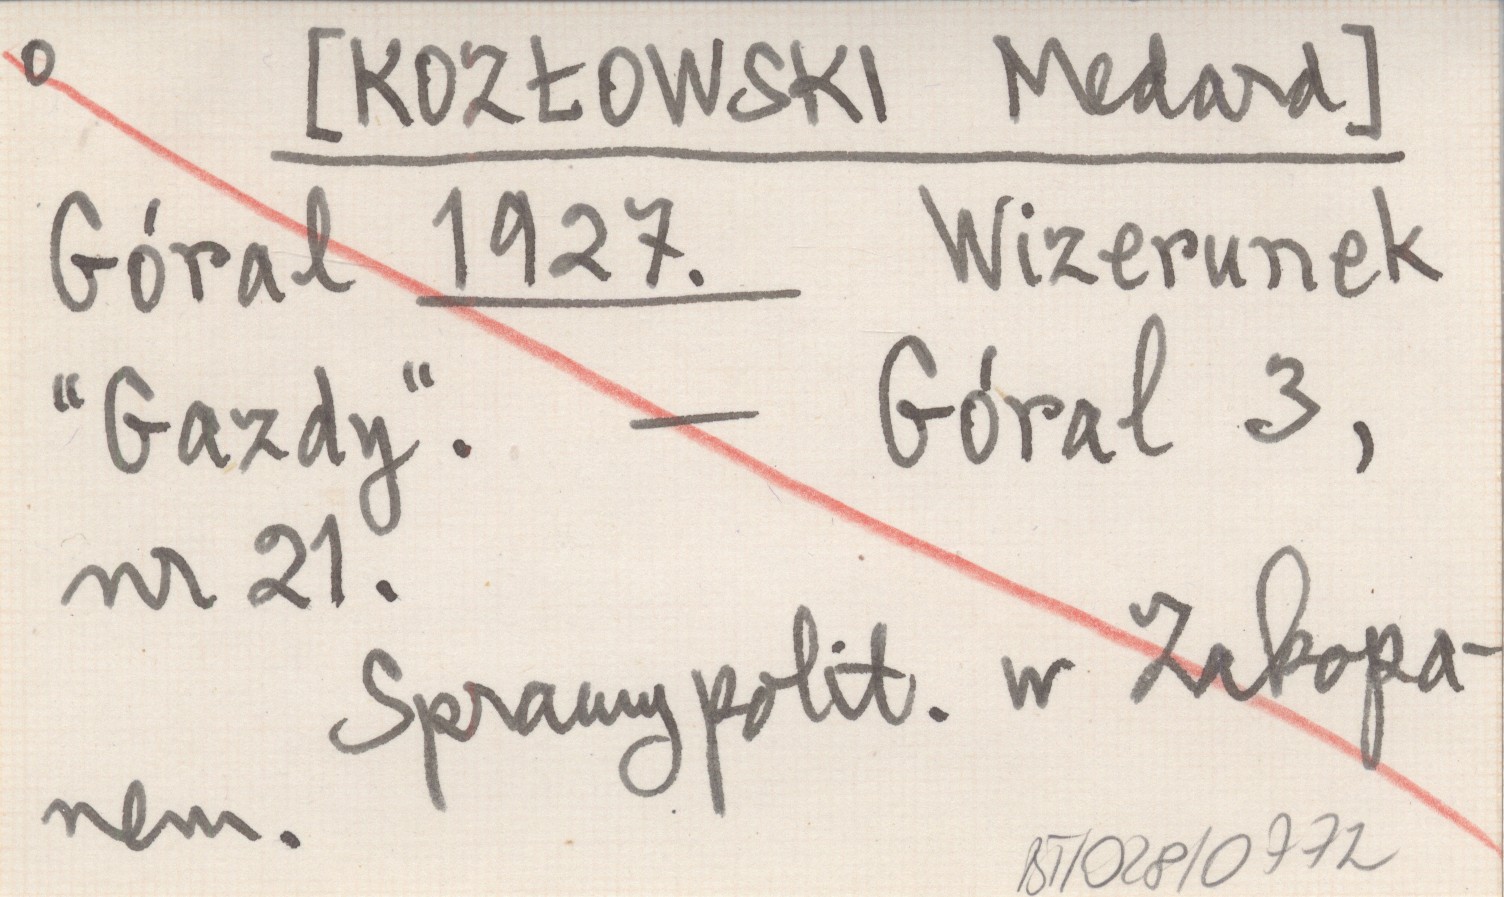 o [KOZŁOWSKI Medard]
Góral 1927. Wizerunek
"Gazdy". — Góral 3,
nr 21.
Sprawy polit. w Zakopa-
nem.
BT/028/0772